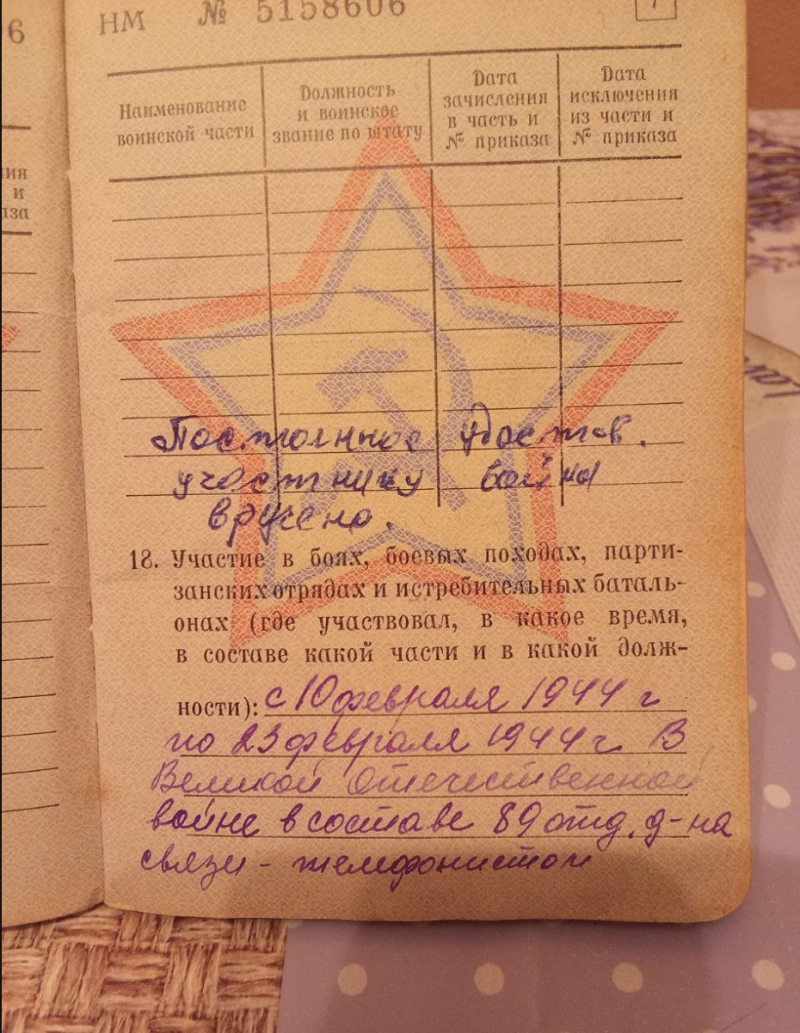 6
НМ № 5158606
7
ния
и
аза
Наименование воинской части
Должность и воинское звание по штату
Дата зачисления в часть и № приказа
Дата исключения из части и № приказа
Постоянное удостов.
участнику войны
вручено.
18. Участие в боях, боевых походах, парти-
занских отрядах и истребительных баталь-
онах (где участвовал, в какое время,
в составе какой части и в какой долж-
ности): с 10 февраля 1944 г
по 23 февраля 1944 г. В
Великой Отечественной
войне в составе 89 отд. д-на
связи - телефонистом